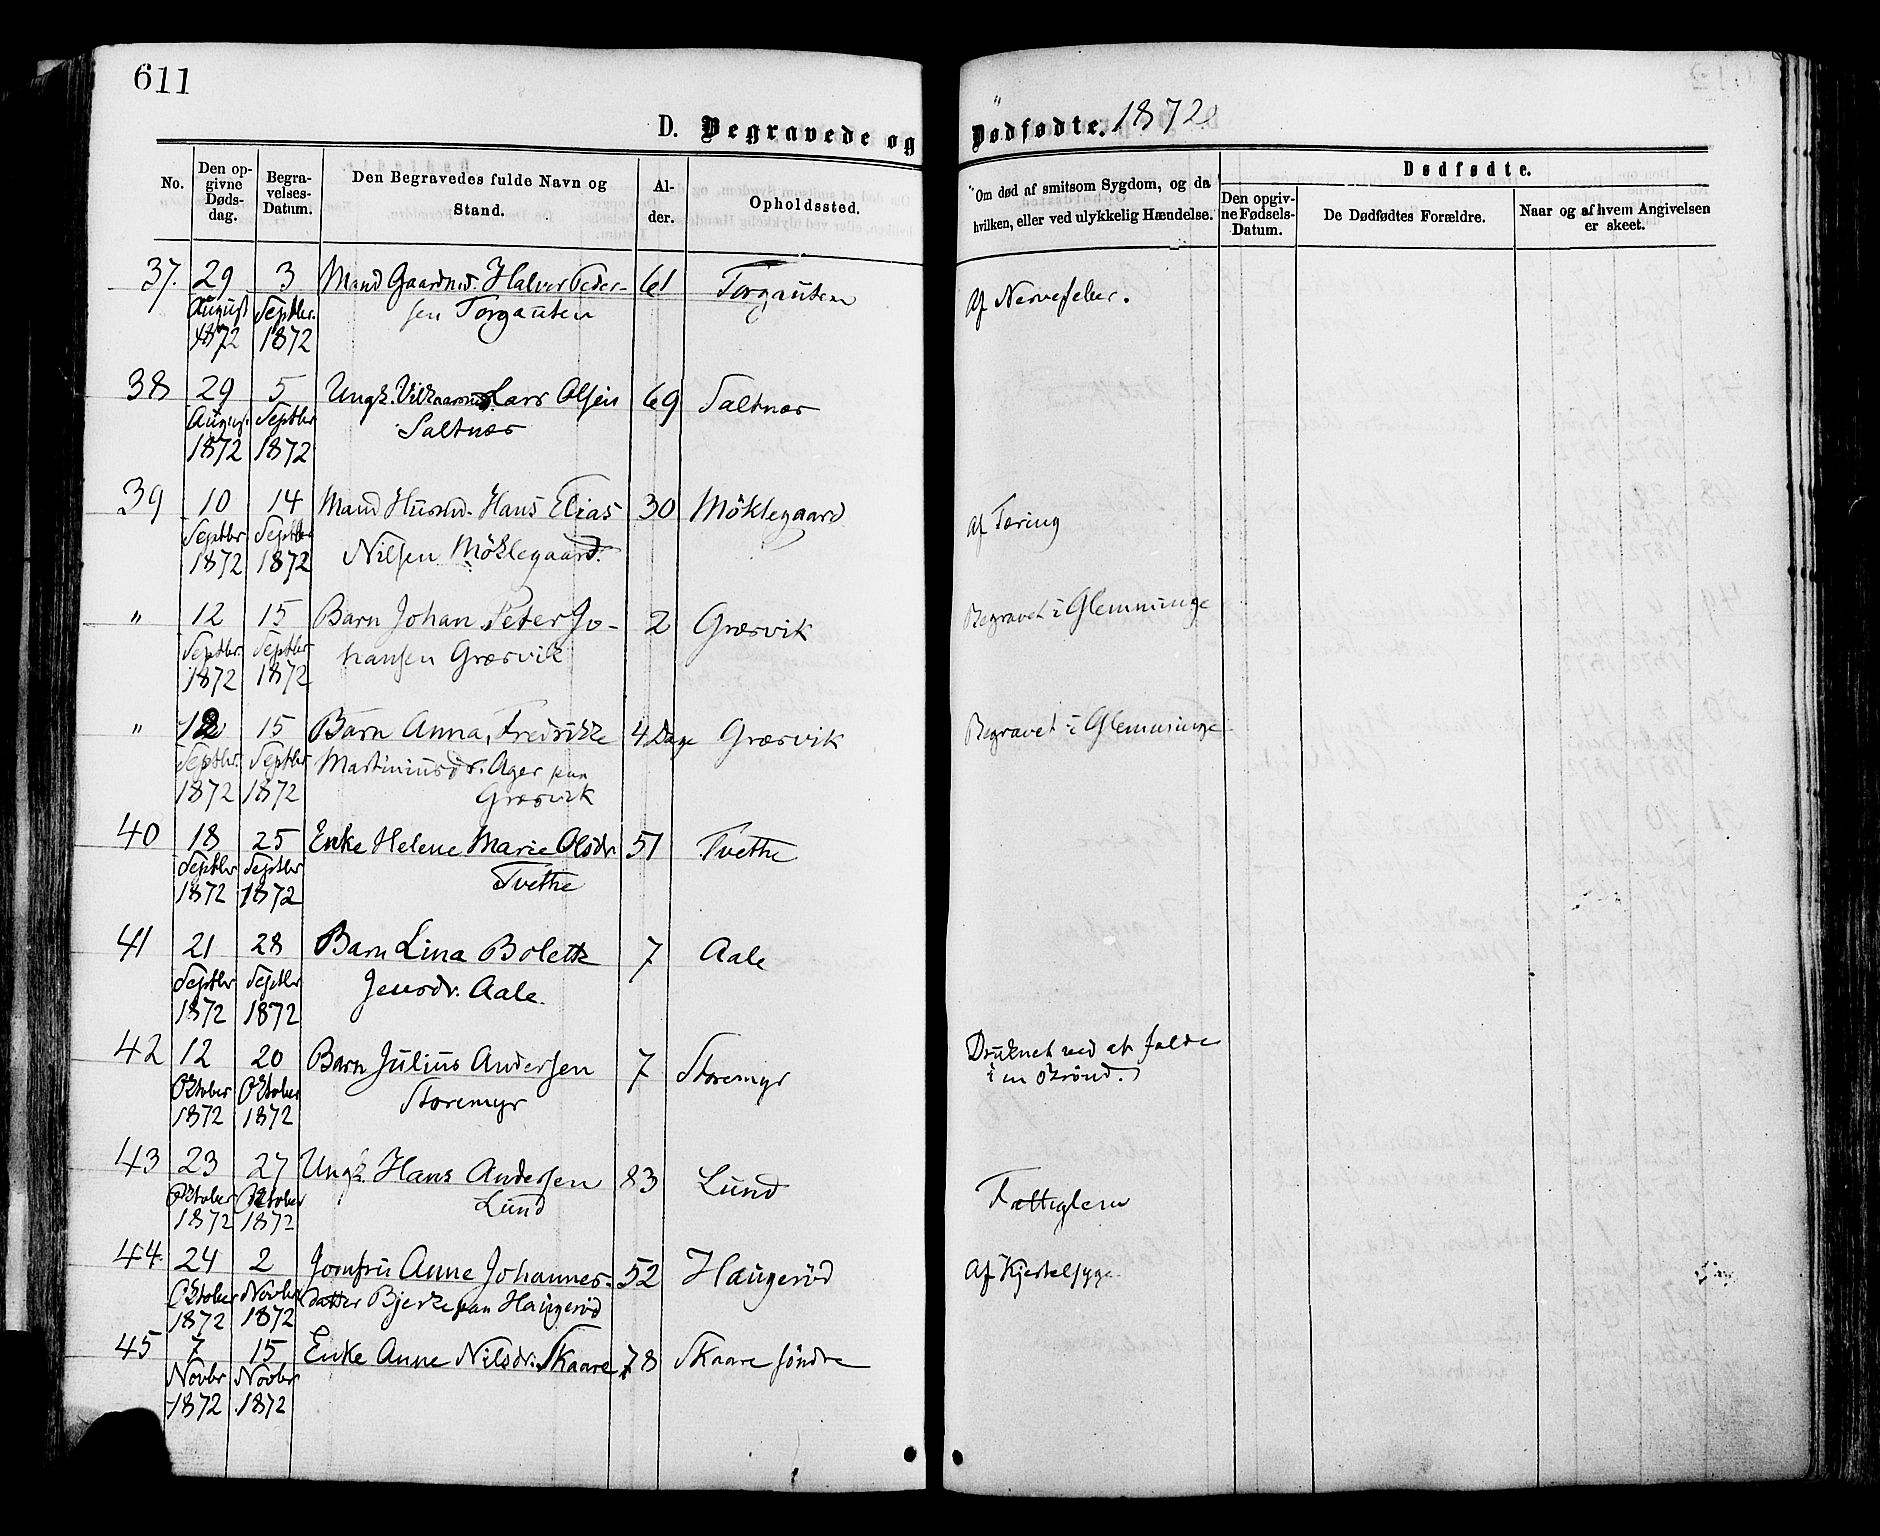 611
D. Begravede og Dødfødte. 1872
No.
Den opgivne Dødsdag.
Begravelses-Datum.
Den Begravedes fulde Navn og Stand.
Alder.
Opholdssted.
Om død af smitsom Sygdom, og da hvilken, eller ved ulykkelig Hændelse.
Dødfødte.
Den opgivne Fødsels-Datum.
De Dødfødtes Forældre.
Naar og af hvem Angivelsen er skeet.
37. 29 3 Mand Gaardmd. Halvor Peder- 61 Torgauten Af Nervefeber.
August Septbr. sen Torgauten
1872 1872
38 29 5 Ungk. Vilkaarsmd. Lars Olsen 69 Saltnæs
August Septbr Saltnæs
1872 1872
39 10 14 Mand Husmd. Hans Elias 30 Möklegaard Af Tæring
Septbr Septbr
1872 1872 Nilsen Möklegaard.
" 12 15 Barn Johan Peter Jo- 2 Græsvik Begravet i Glemminge
Septbr Septbr hansen Græsvik
1872 1872
" 12 15 Barn Anna Fredrikke 4 Dage Græsvik Begravet i Glemminge
Septbr. Septbr Martiniusdr. Ager paa
1872 1872 Græsvik
40 18 25 Enke Helene Marie Olsdr. 51 Tvethe
Septbr Septbr Tvethe
1872 1872
41 21 28 Barn Lina Bolette 7 Aale
Septbr Septbr Jensdr. Aale.
1872 1872
42 12 20 Barn Julius Andersen 7 Storemyr Druknet ved at falde
Oktober Oktober Storemyr i en Brönd.
1872 1872
43 23 27 Ungk. Hans Andersen 83 Lund Fattiglem
Oktober Oktober Lund
1872 1872
44. 24 2 Jomfru Anne Johannes- 52 Haugeröd Af Kjertelsyge
Oktober Novbr datter Bjerke paa Haugeröd
1872 1872
45 7 15 Enke Anne Nilsdr. Skaare 78 Skaare söndre
Novbr Novbr
1872 1872